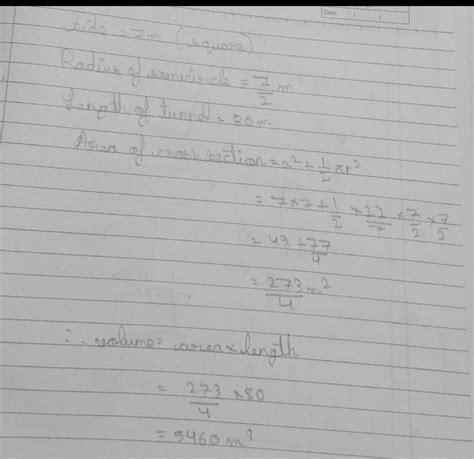 Date / /
Side = 7m (square)
Radius of semicircle = 7/2 m
Length of tunnel = 80m
Area of cross section = a² + 1/2 πr²
= 7×7 + 1/2 × 22/7 × 7/2 × 7/2
= 49 + 77/4
= 273/4 m²
∴ volume = area × length
= 273/4 × 80
= 5460 m³